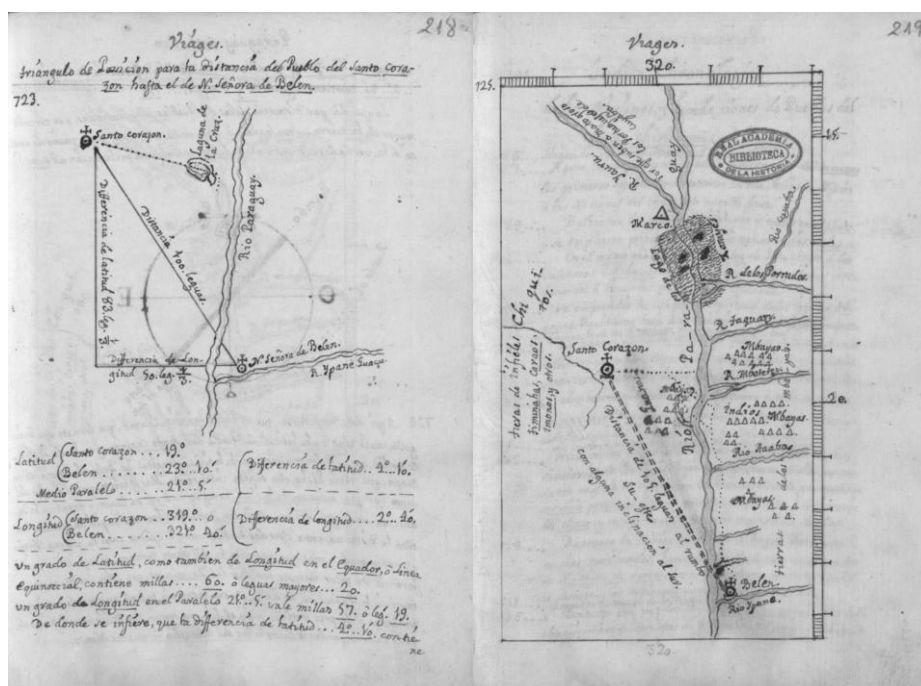 218
Viages.
triángulo de Posicion para la distancia del Pueblo del Santo Cora-
zon hasta el de Nª. Señora de Belen.
723.
Santo corazon.
Laguna de
la Cruz.
Rio Paraguay.
Differencia de latitud 83. leg.
Distancia 100. leguas.
Differencia de Lon-
gitud 50. leg.
Nª. Señora de Belen.
R. Ypanè Guaçu.
Latitud
Santo corazon ... 19.º
Belen ....... 23.º 10.'
Medio Paralelo ...... 21.º 5.'
Differencia de latitud .. 4.º 10.
Longitud
Santo corazon .. 319.º 0
Belen ....... 321.º 40.'
Differencia de longitud ... 2.º 40.
un grado de Latitud, como tambien de Longitud en el Equador, ò Linea
Equinoccial, contiene millas .... 60. ò leguas mayores .. 20.
un grado de Longitud en el Paralelo 21.º 5.' vale millas 57. ò leg. 19.
De donde se infiere, que la differencia de latitud .. 4.º 10. contie
ne
219
Viages.
320.
125.
R. Jauru
guay
REAL ACADEMIA
BIBLIOTECA
DE LA HISTORIA
Marco.
Lago de los
Rio Cuyaba.
R. de los Porrudos.
Chi qui
tos.
Pa - ra -
R. Taquary.
Santo Corazon.
Mbayas.
R. Mboteley
tierras de infieles
Timinahas, Caraos
Imonos, y otros.
Indios
Mbayas.
20.
Rio
Distancia de 105. leguas
al rumbo
su
con alguna inclinacion al sur
Mbayas
tierras de los
Belen.
Rio Ypane.
320